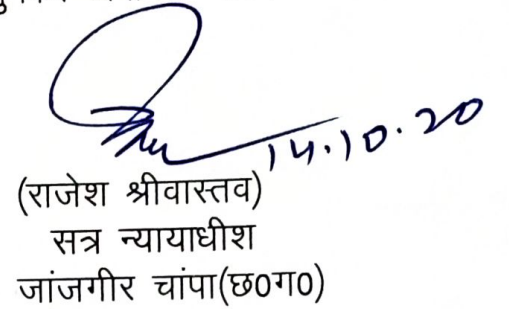 14.10.20
(राजेश श्रीवास्तव)
सत्र न्यायाधीश
जांजगीर चांपा(छ0ग0)